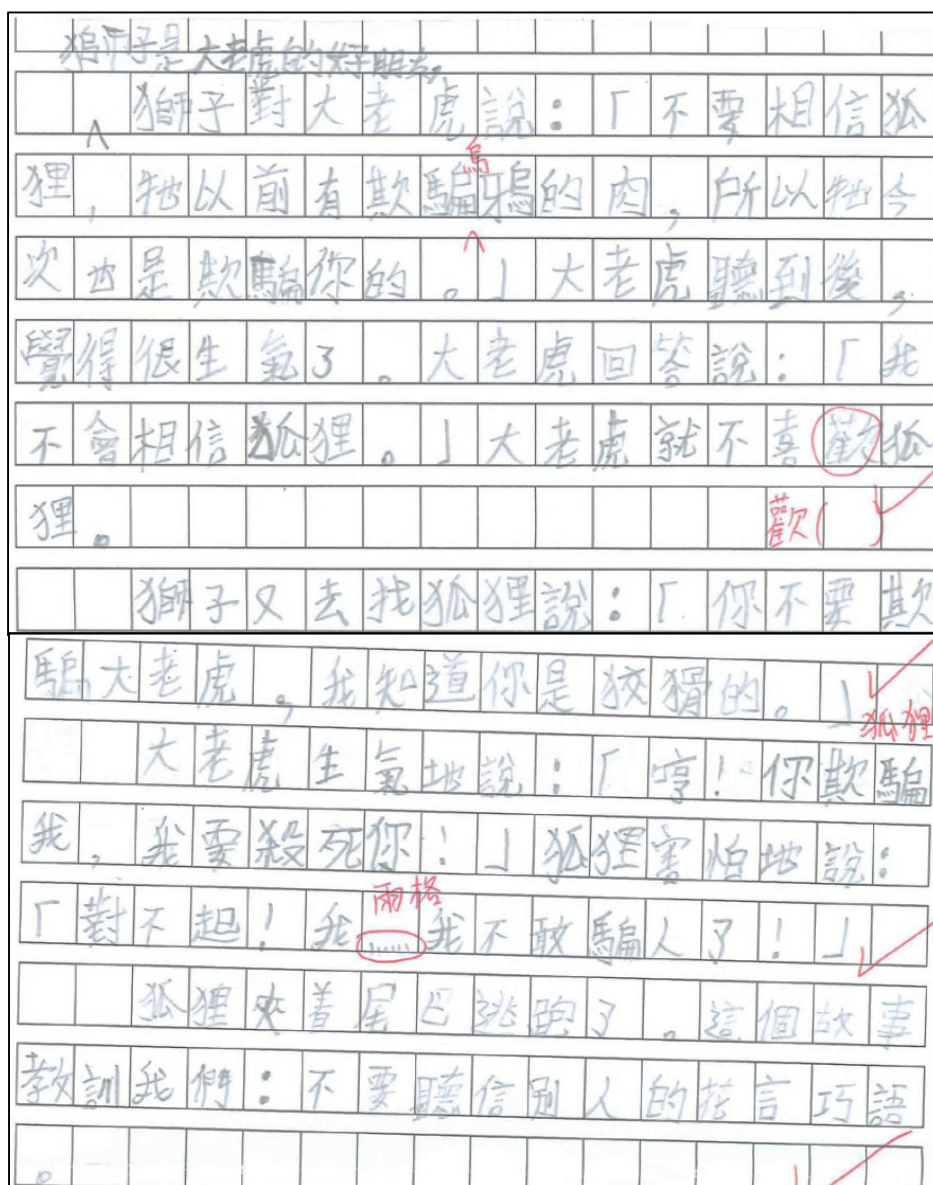 獅子是大老虎的好朋友,
獅子對大老虎說:「不要相信狐
狸,牠以前有欺騙烏鴉的肉,所以牠今
次也是欺騙你的。」大老虎聽到後,
覺得很生氣了。大老虎回答說:「我
不會相信狐狸。」大老虎就不喜歡狐
狸。 歡( )
獅子又去找狐狸說:「你不要欺
騙大老虎,我知道你是狡猾的。」
狐狸
大老虎生氣地說:「哼!你欺騙
我,我要殺死你!」狐狸害怕地說:
兩格
「對不起!我……我不敢騙人了!」
狐狸夾着尾巴逃跑了。這個故事
教訓我們:不要聽信別人的花言巧語
。